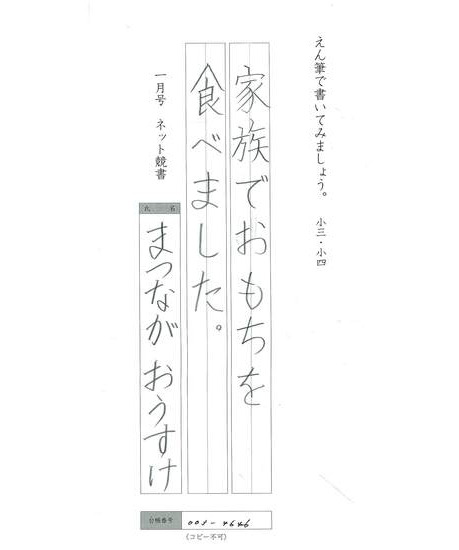 えん筆で書いてみましょう。 小三・小四
家族でおもちを
食べました。
一月号 ネット競書
氏 名
まつながおうすけ
台帳番号
（コピー不可）